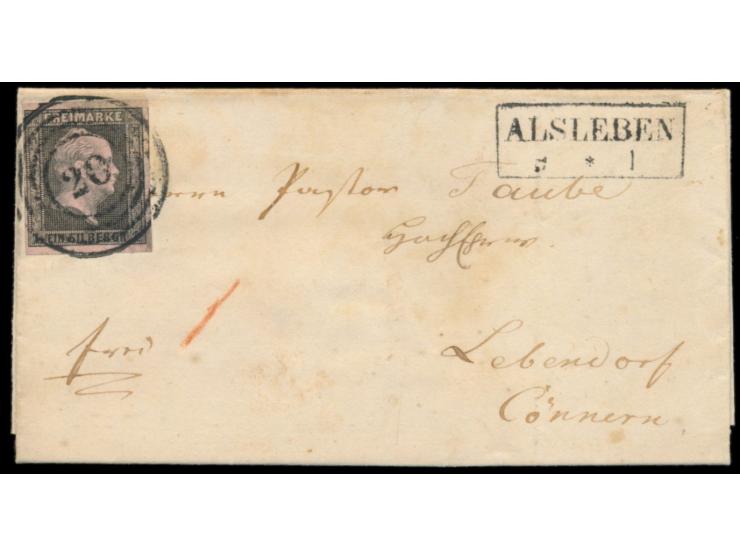 FREIMARKE
20
EIN SILBERGR
ALSLEBEN
5 * 1
Herrn Pastor Taube
Hochehrw.
frei 1
Lebendorf
Cönnern.